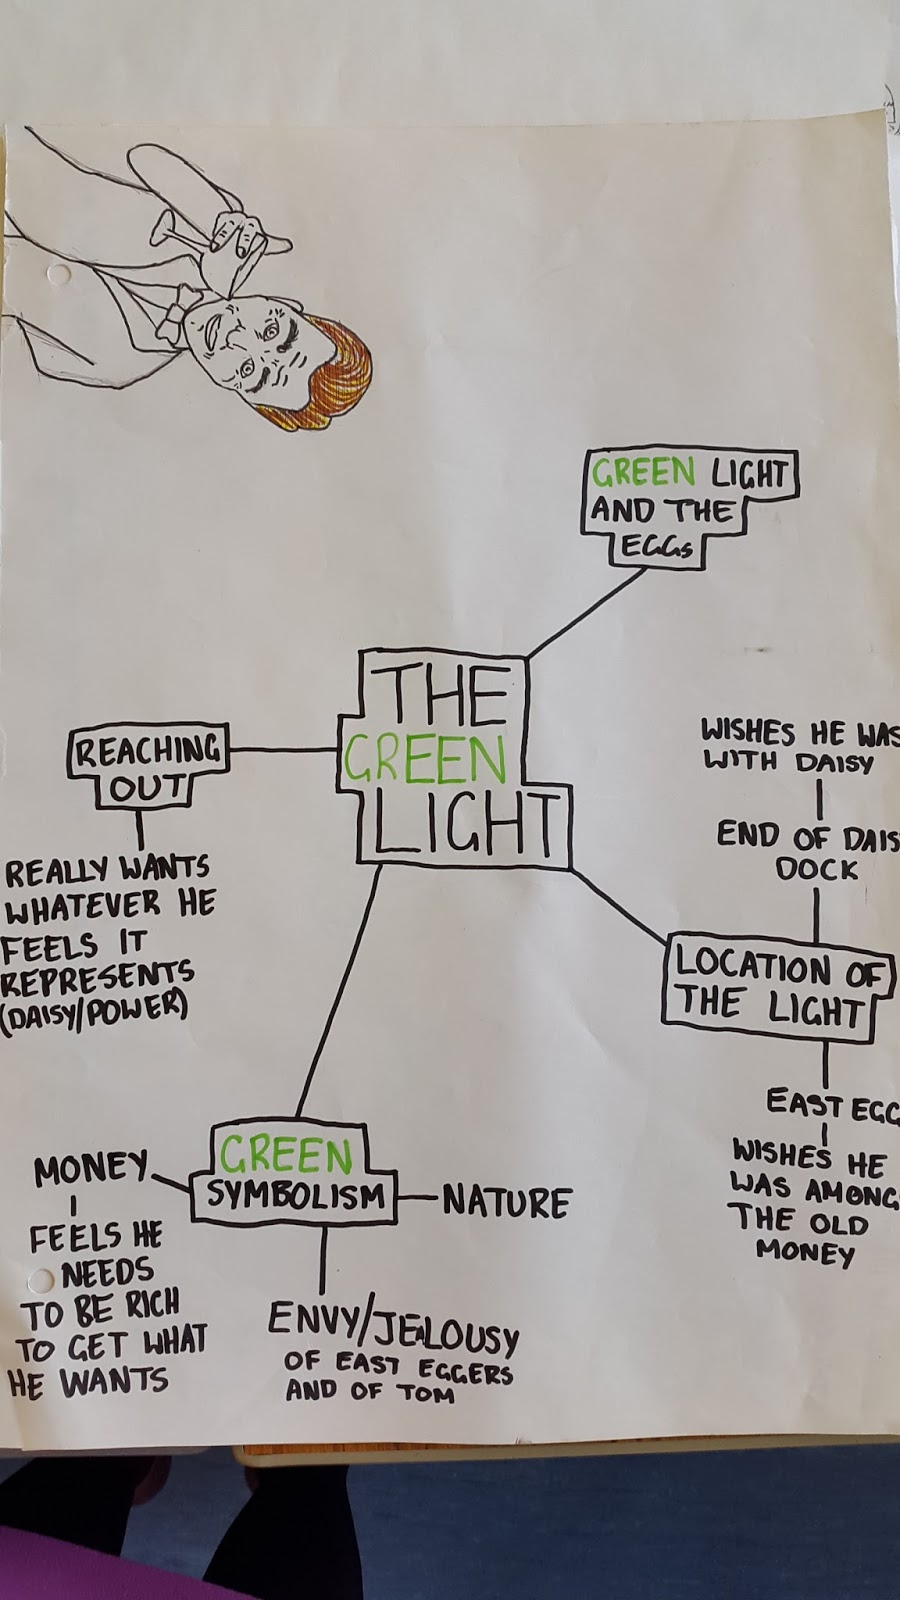 GREEN LIGHT
AND THE
EGGs
THE
GREEN
LIGHT
REACHING
OUT
REALLY WANTS
WHATEVER HE
FEELS IT
REPRESENTS
(DAISY/POWER)
WISHES HE WAS
WITH DAISY
END OF DAIS
DOCK
LOCATION OF
THE LIGHT
EAST EGG
WISHES HE
WAS AMONG
THE OLD
MONEY
GREEN
SYMBOLISM
MONEY
FEELS HE
NEEDS
TO BE RICH
TO GET WHAT
HE WANTS
NATURE
ENVY/JEALOUSY
OF EAST EGGERS
AND OF TOM